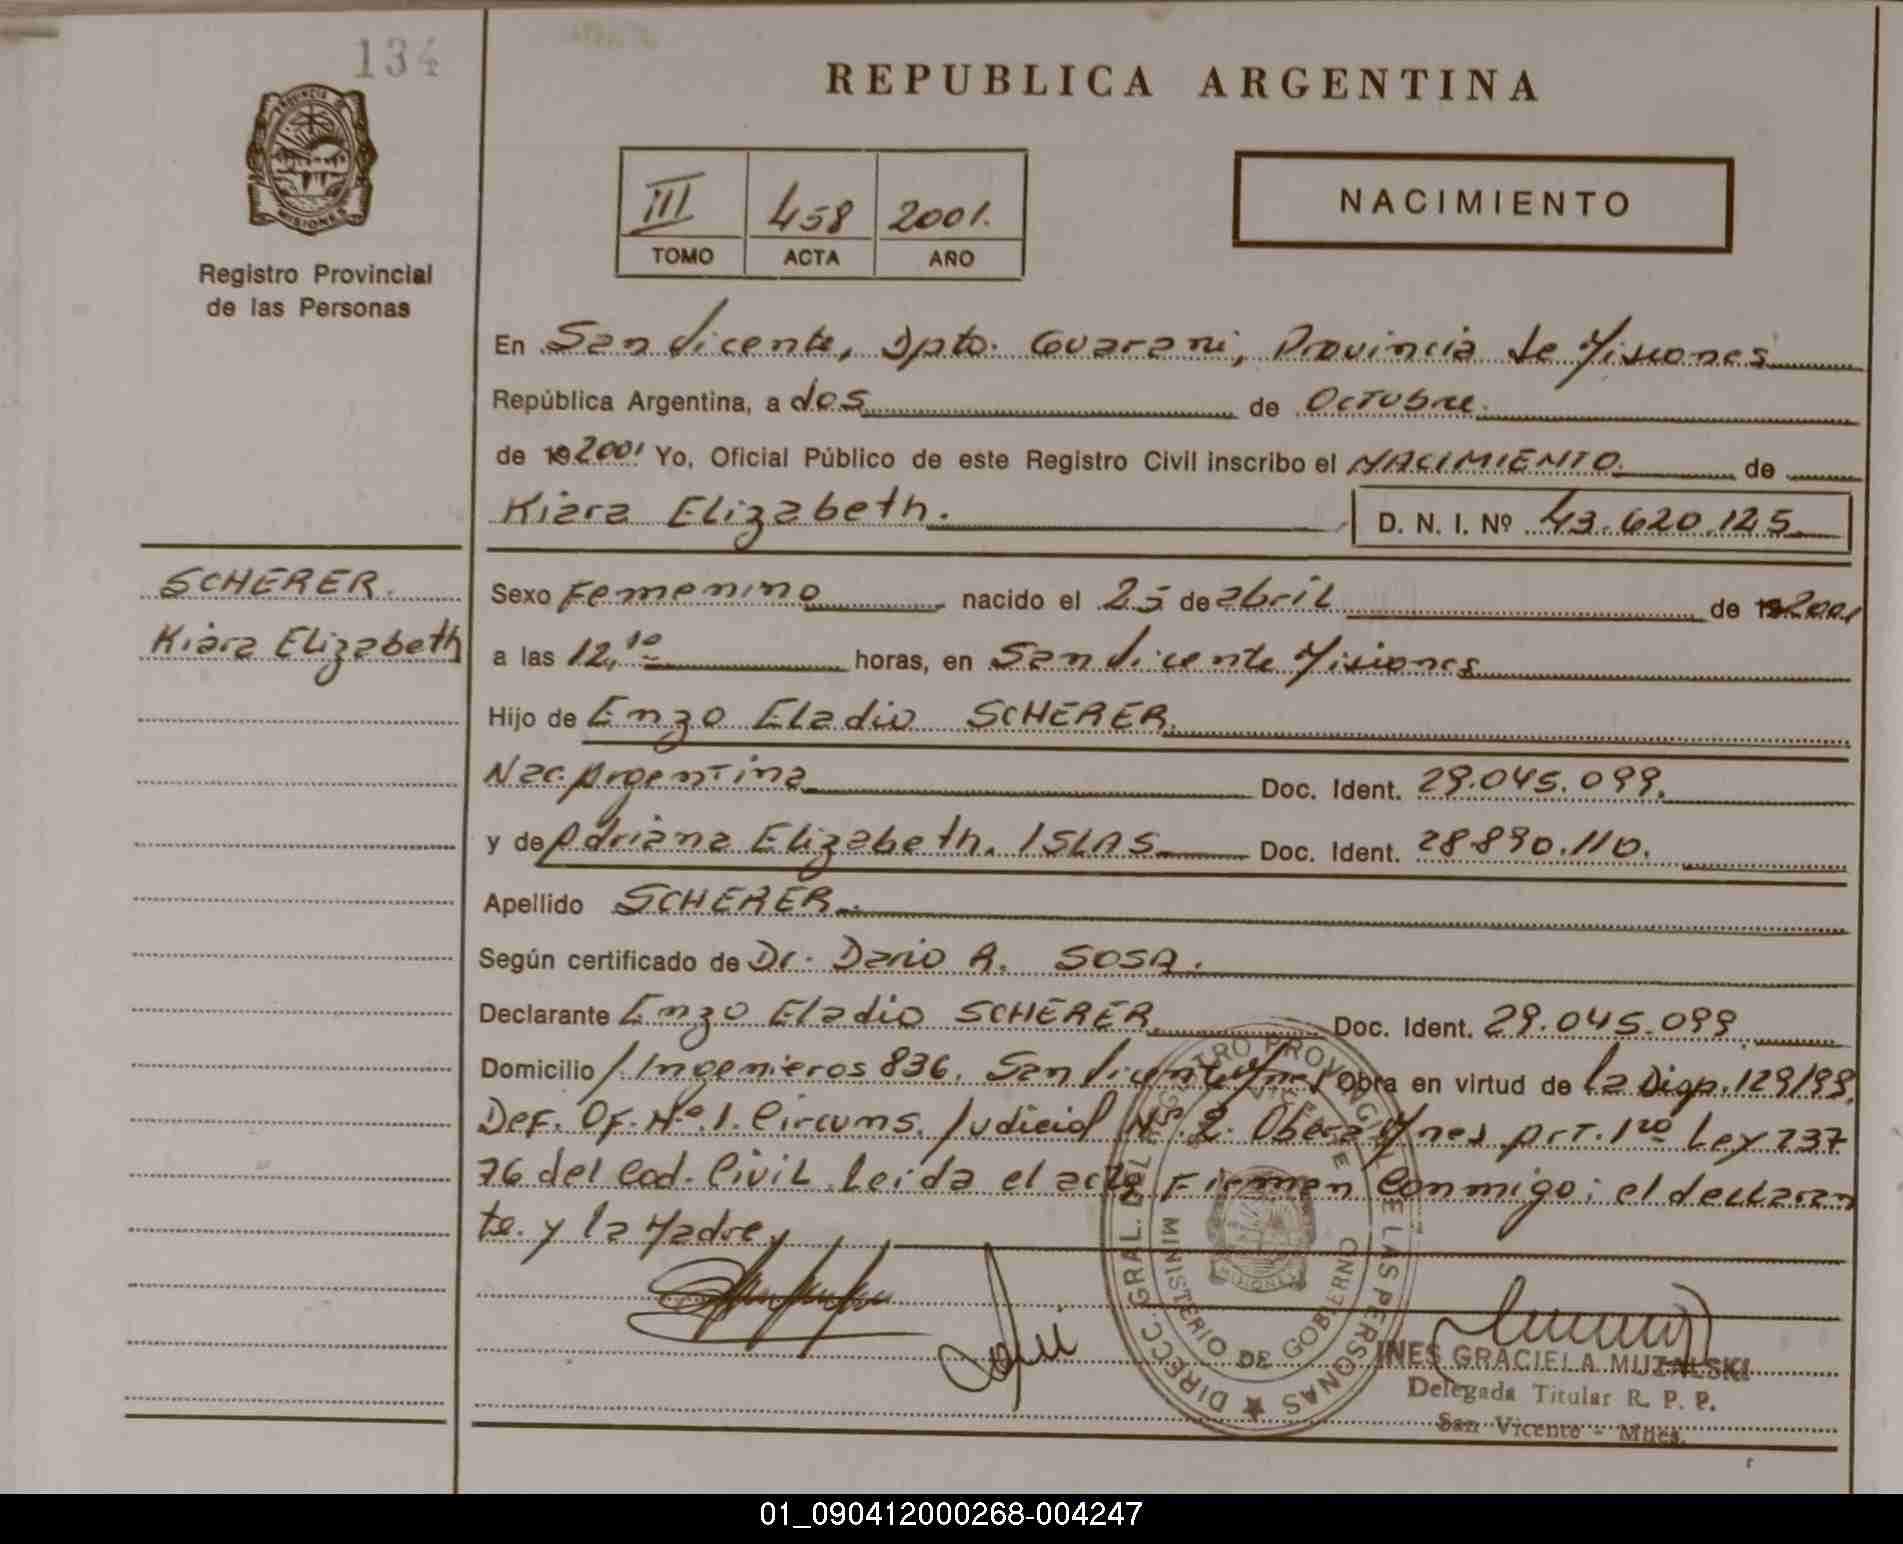 134
PROVINCIA DE
MISIONES
Registro Provincial
de las Personas
SCHERER.
Kiara Elizabeth
REPUBLICA ARGENTINA
III 458 2001.
TOMO ACTA AÑO
NACIMIENTO
En San Vicente, Dpto. Guarani, Provincia de Misiones
República Argentina, a dos de Octubre.
de 19 2001 Yo, Oficial Público de este Registro Civil inscribo el NACIMIENTO de
Kiara Elizabeth. D. N. I. Nº 43.620.125
Sexo Femenino nacido el 25 de abril de 19 2001
a las 12,10 horas, en San Vicente Misiones
Hijo de Enzo Eladio SCHERER
Nac. Argentina Doc. Ident. 29.045.099.
y de Adriana Elizabeth. ISLAS Doc. Ident. 28.890.110.
Apellido SCHERER.
Según certificado de Dr. Dario A. SOSA.
Declarante Enzo Eladio SCHERER Doc. Ident. 29.045.099
Domicilio / Ingenieros 836, San Vicente Mnes Obra en virtud de la Disp. 129/99,
Def. Of. Nº 1. Circuns. Judicial Nº 2. Obera Mnes Art. 1ro Ley 237
76 del Cod. Civil Leida el acta Firman Conmigo: el declaran
te. y la Madre
DIRECC. GRAL. DEL REGISTRO PROVINCIAL DE LAS PERSONAS
MINISTERIO DE GOBIERNO
VICENTE
MISIONES
INES GRACIELA MUZALSKI
Delegada Titular R. P. P.
San Vicente - Mnes.
01_090412000268-004247